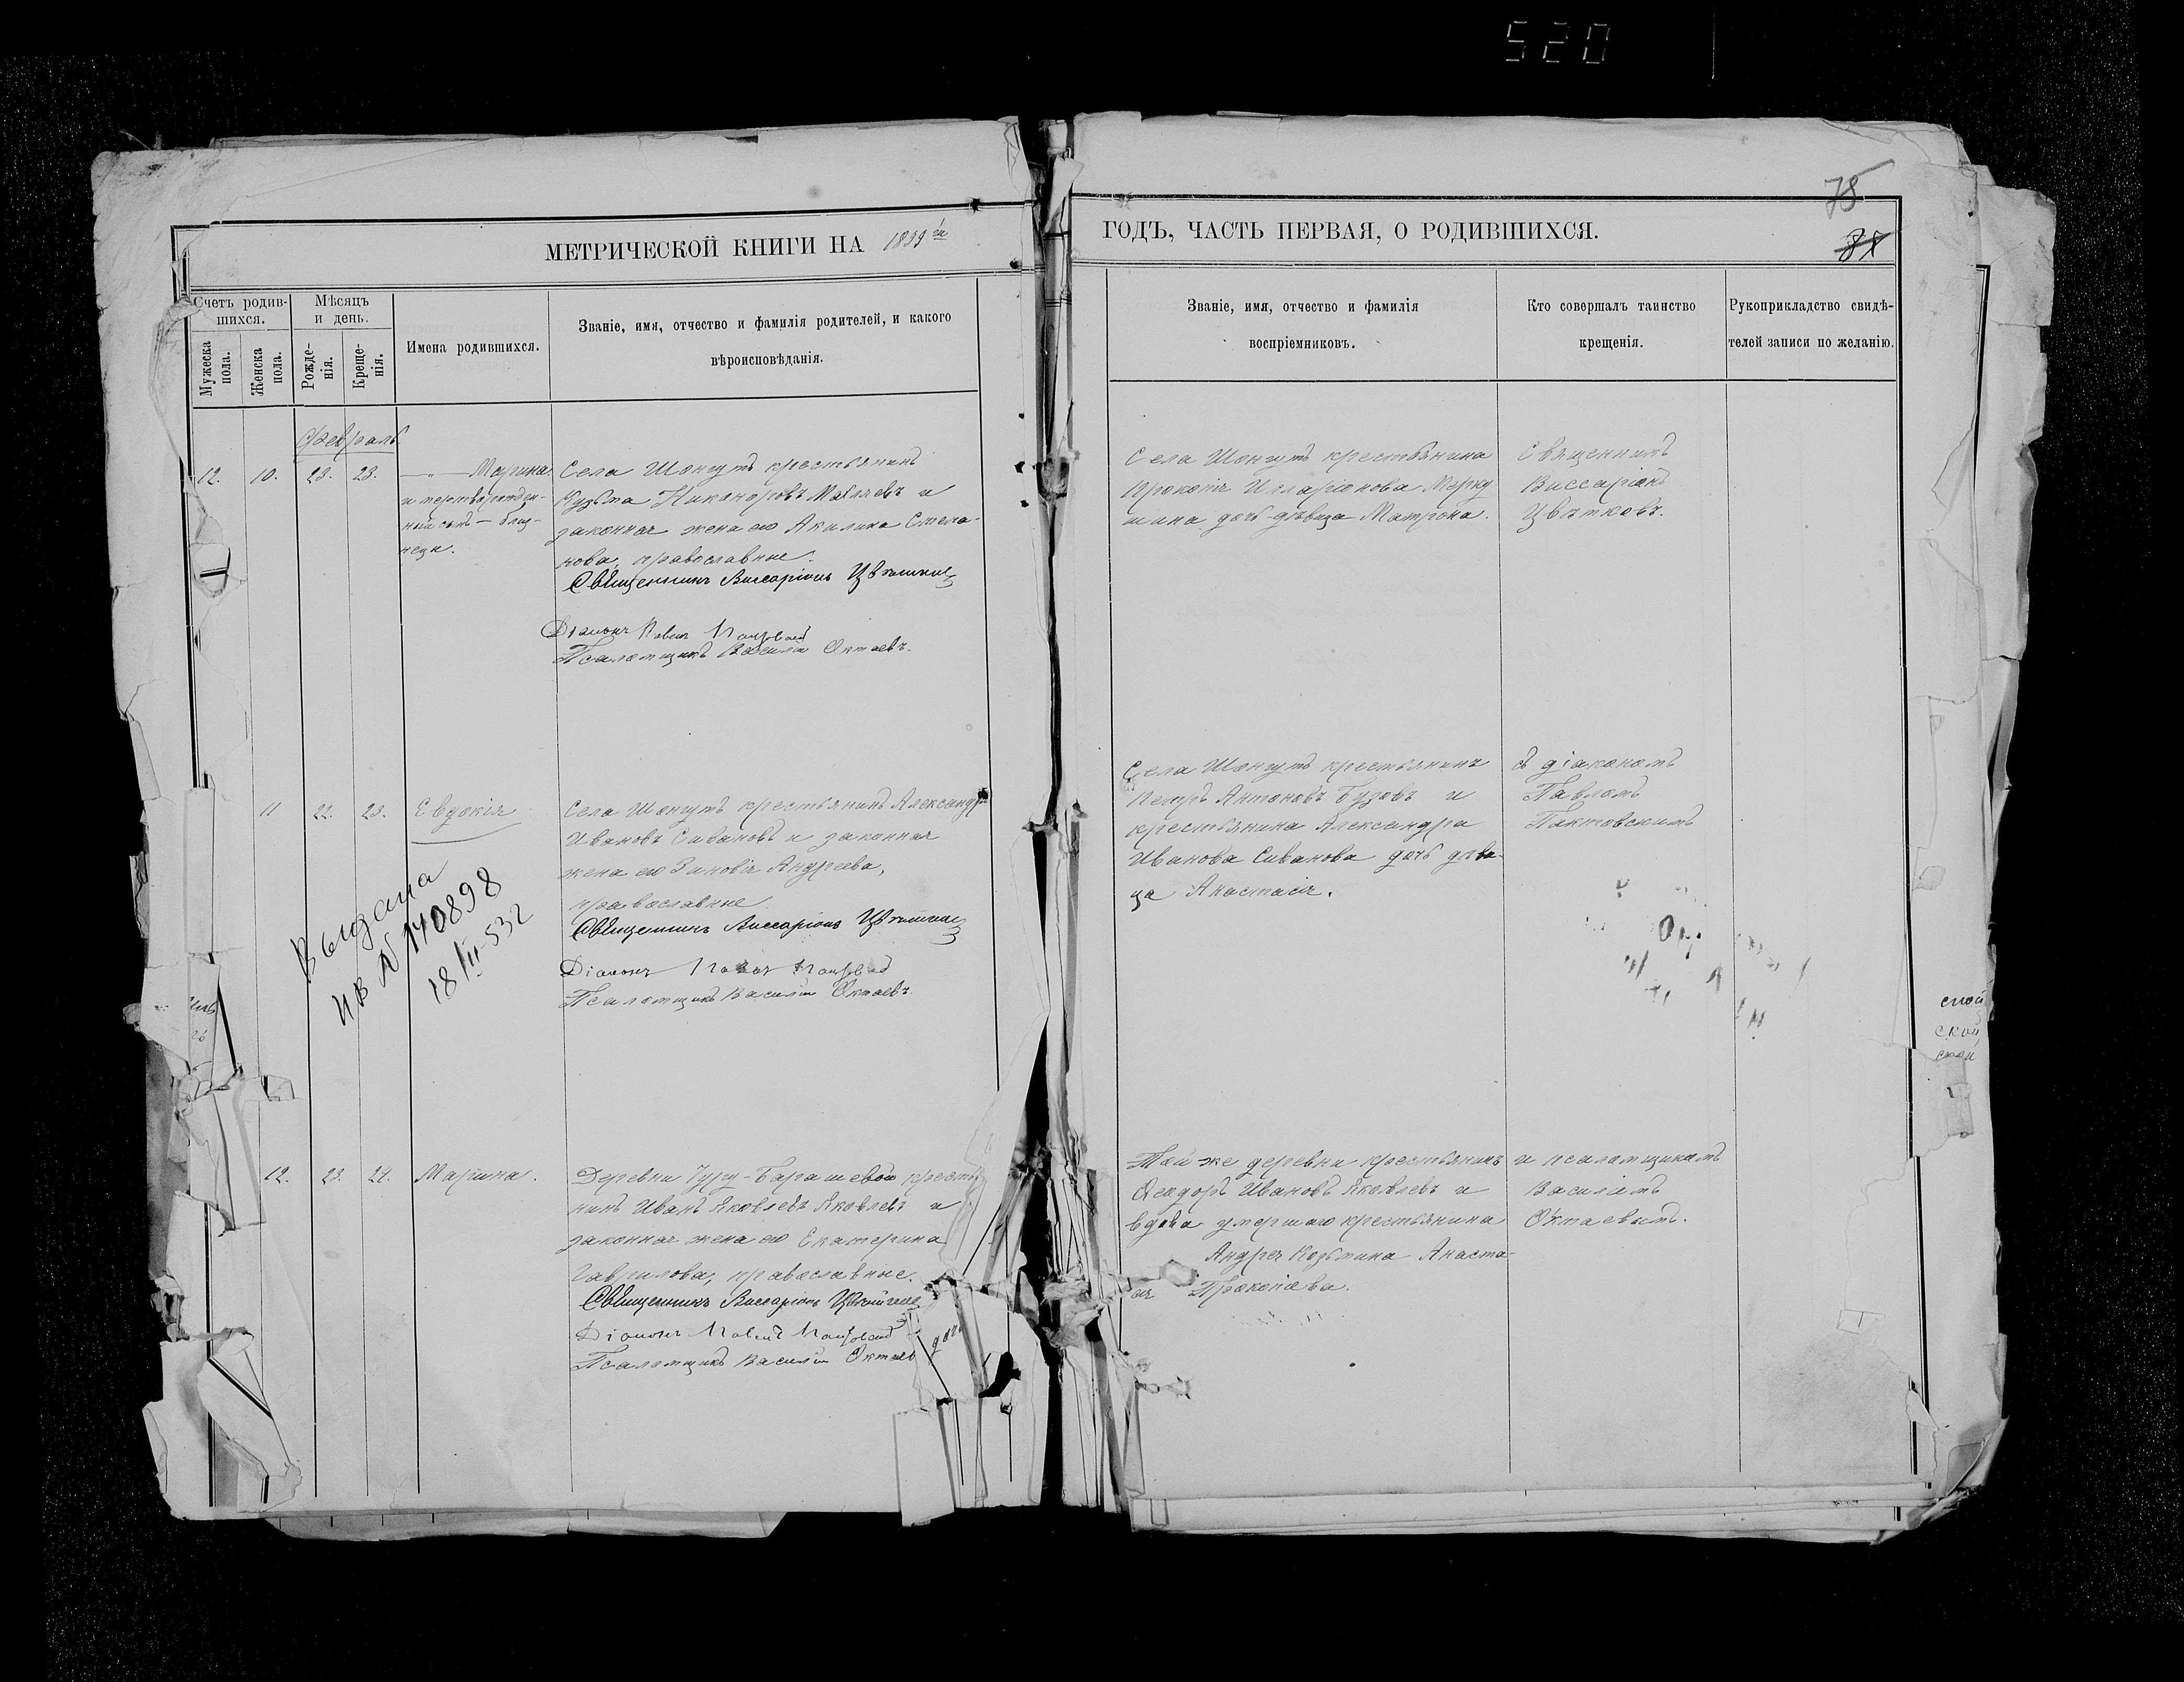 520
78
81
МЕТРИЧЕСКОЙ КНИГИ НА 1899 й
ГОДЪ, ЧАСТЬ ПЕРВАЯ, О РОДИВШИХСЯ.
Счетъ родив-
шихся.
Мужеска
пола.
Женска
пола.
Мѣсяцъ
и день.
Рожде-
нія.
Креще-
нія.
Имена родившихся.
Званіе, имя, отчество и фамилія родителей, и какого
вѣроисповѣданія.
Званіе, имя, отчество и фамилія
воспріемниковъ.
Кто совершалъ таинство
крещенія.
Рукоприкладство свидѣ-
телей записи по желанію.
Февраль
12. 10. 23. 23.
Марина
и мертворожден-
ный сынъ – близ-
нецы.
Села Шонгутъ крестьянинъ
Кузьма Никаноровъ и
законная жена его Акилина Степа-
нова, православные.
Священникъ Виссаріонъ Цвѣтковъ
Діаконъ Павелъ
Псаломщикъ Василій Октаевъ.
Села Шонгутъ крестьянина
Прокопія Илларіонова Мерку
шина дочь-дѣвица Матрона.
Священникъ
Виссаріонъ
Цвѣтковъ.
11 22. 23. Евдокія
Села Шонгутъ крестьянинъ Александръ
Ивановъ Сивановъ и законная
жена его Зиновія Андреева,
православные
Священникъ Виссаріонъ Цвѣтковъ
Діаконъ Павелъ
Псаломщикъ Василій Октаевъ.
Выдана
ИВ N 140898
18/II-532
Села Шонгутъ крестьянинъ
Петръ Антоновъ Бузовъ и
крестьянина Александра
Иванова Сиванова дочь дѣви-
ца Анастасія.
съ діакономъ
Павломъ
Пактовскимъ
12. 23. 24. Марина.
Деревни Бурашевой кресть
нинъ Иванъ Яковлевъ Яковлевъ и
законная жена его Екатерина
Гаврилова, православные.
Священникъ Виссаріонъ Цвѣтковъ
Діаконъ Павелъ
Псаломщикъ Василій Октаев
Той же деревни крестьянинъ
Ѳеодоръ Ивановъ Яковлевъ и
вдова умершаго крестьянина
Андрея Козьмина Анаста-
сія Прокопіева.
и псаломщикомъ
Василіемъ
Октаевымъ.
ской
ской